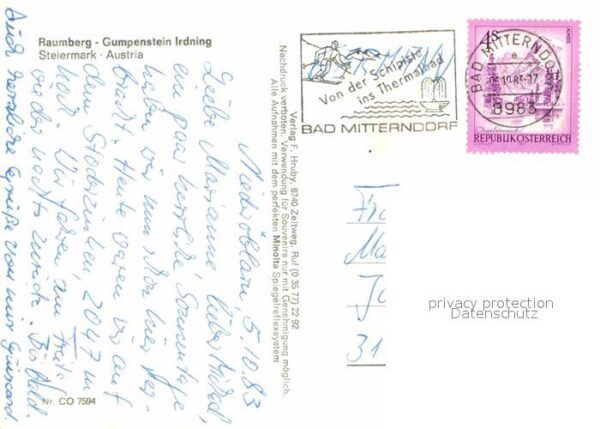 Raumberg - Gumpenstein Irdning
Steiermark · Austria
Niederöblarn, 5.10.83
Liebe Marianne, lieber
ein paar herrliche Sonnentage
haben wir nun schon hier ver-
bracht. Heute waren wir auf
dem Stoderzinken, 2047 m
hoch. Wir fahren am Freitag
wieder nachts zurück. Bis bald.
Auch herzliche Grüße von mir
Nr. CO 7594
Verlag F. Hruby, 8740 Zeltweg, Ruf (0 35 77) 22 92
Nachdruck verboten. Verwendung für Souvenirs nur mit Genehmigung möglich.
Alle Aufnahmen mit dem perfekten Minolta Spiegelreflexsystem
Von der Schipiste
ins Thermalbad
BAD MITTERNDORF
4S
BAD MITTERNDORF
8983
REPUBLIK ÖSTERREICH
Fr
Ma
31
privacy protection
Datenschutz